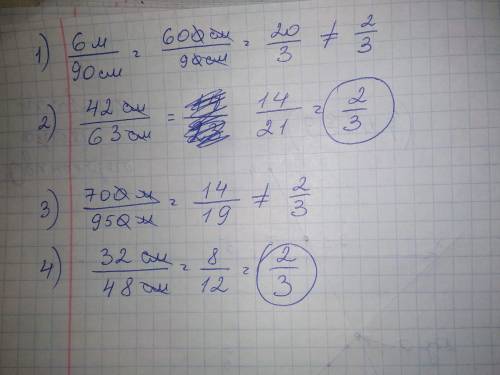 1) 6м/90см = 600см/90см = 20/3 ≠ 2/3
2) 42см/63см = 14/21 = 2/3
3) 700м/950м = 14/19 ≠ 2/3
4) 32см/48см = 8/12 = 2/3